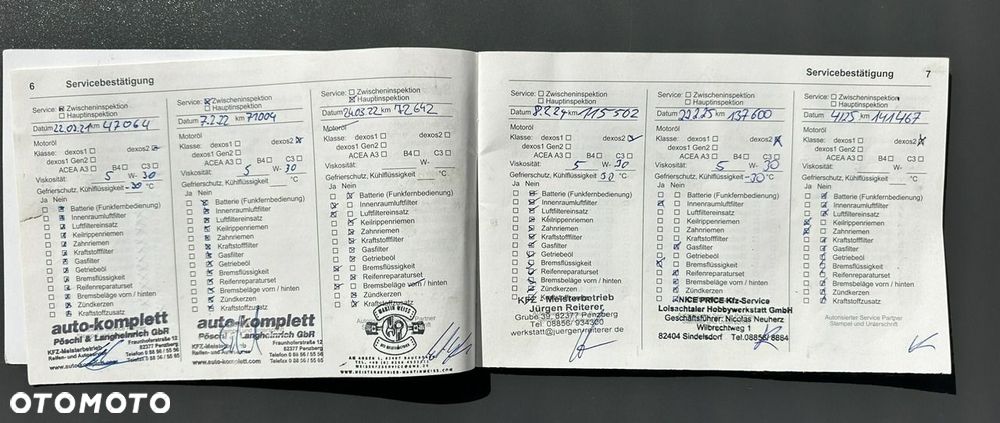 6 Servicebestätigung
Service: Zwischeninspektion
Hauptinspektion
Datum 22.02.21 km 47064
Motoröl
Klasse: dexos1 dexos2
dexos1 Gen2
ACEA A3 B4 C3
Viskosität: 5 W- 30
Gefrierschutz, Kühlflüssigkeit -30 °C
Ja Nein
Batterie (Funkfernbedienung)
Innenraumluftfilter
Luftfiltereinsatz
Keilrippenriemen
Zahnriemen
Kraftstofffilter
Gasfilter
Getriebeöl
Bremsflüssigkeit
Reifenreparaturset
Bremsbeläge vorn / hinten
Zündkerzen
Kraftstoffzusatz
auto-komplett
Pöschl & Langheinrich GbR
KFZ-Meisterbetrieb
Reifen- und
Fraunhoferstraße 12
82377 Penzberg
Telefon 0 88 56 / 55 65
Service: Zwischeninspektion
Hauptinspektion
Datum 7.2.22 km 71004
Motoröl
Klasse: dexos1 dexos2
dexos1 Gen2
ACEA A3 B4 C3
Viskosität: 5 W- 30
Gefrierschutz, Kühlflüssigkeit °C
Ja Nein
Batterie (Funkfernbedienung)
Innenraumluftfilter
Luftfiltereinsatz
Keilrippenriemen
Zahnriemen
Kraftstofffilter
Gasfilter
Getriebeöl
Bremsflüssigkeit
Reifenreparaturset
Bremsbeläge vorn / hinten
Zündkerzen
Kraftstoffzusatz
auto-komplett
Pöschl & Langheinrich GbR
KFZ-Meisterbetrieb
Fraunhoferstraße 12
82377 Penzberg
Telefon 0 88 56 / 55 65
www.auto-komplett.com
Service: Zwischeninspektion
Hauptinspektion
Datum 24.03.22 km 72642
Motoröl
Klasse: dexos1 dexos2
dexos1 Gen2
ACEA A3 B4 C3
Viskosität: W-
Gefrierschutz, Kühlflüssigkeit °C
Ja Nein
Batterie (Funkfernbedienung)
Innenraumluftfilter
Luftfiltereinsatz
Keilrippenriemen
Zahnriemen
Kraftstofffilter
Gasfilter
Getriebeöl
Bremsflüssigkeit
Reifenreparaturset
Bremsbeläge vorn / hinten
Zündkerzen
Kraftstoffzusatz
MARTIN WEISS
WWW.MEISTERBETRIEB-MARTINWEISS.COM
Servicebestätigung 7
Service: Zwischeninspektion
Hauptinspektion
Datum 8.2.24 km 115502
Motoröl
Klasse: dexos1 dexos2
dexos1 Gen2
ACEA A3 B4 C3
Viskosität: 5 W- 30
Gefrierschutz, Kühlflüssigkeit 30 °C
Ja Nein
Batterie (Funkfernbedienung)
Innenraumluftfilter
Luftfiltereinsatz
Keilrippenriemen
Zahnriemen
Kraftstofffilter
Gasfilter
Getriebeöl
Bremsflüssigkeit
Reifenreparaturset
Bremsbeläge vorn / hinten
Zündkerzen
KFZ - Meisterbetrieb
Jürgen Reiterer,
Grube 39, 82377 Penzberg
Tel. 08856/ 934330
werkstatt@juergenreiterer.de
Service: Zwischeninspektion
Hauptinspektion
Datum 22.2.25 km 137600
Motoröl
Klasse: dexos1 dexos2
dexos1 Gen2
ACEA A3 B4 C3
Viskosität: 5 W- 30
Gefrierschutz, Kühlflüssigkeit -30 °C
Ja Nein
Batterie (Funkfernbedienung)
Innenraumluftfilter
Luftfiltereinsatz
Keilrippenriemen
Zahnriemen
Kraftstofffilter
Gasfilter
Getriebeöl
Bremsflüssigkeit
Reifenreparaturset
Bremsbeläge vorn / hinten
Zündkerzen
NICE PRICE Kfz-Service
Loisachtaler Hobbywerkstatt GmbH
Geschäftsführer: Nicolas Neuherz
Wilbrechtweg 1
82404 Sindelsdorf Tel.08856/ 8864
Service: Zwischeninspektion
Hauptinspektion
Datum 4.1.25 km 141467
Motoröl
Klasse: dexos1 dexos2
dexos1 Gen2
ACEA A3 B4 C3
Viskosität: W-
Gefrierschutz, Kühlflüssigkeit °C
Ja Nein
Batterie (Funkfernbedienung)
Innenraumluftfilter
Luftfiltereinsatz
Keilrippenriemen
Zahnriemen
Kraftstofffilter
Gasfilter
Getriebeöl
Bremsflüssigkeit
Reifenreparaturset
Bremsbeläge vorn / hinten
Zündkerzen
Kraftstoffzusatz
Autorisierter Service Partner
Stempel und Unterschrift
OTOMOTO